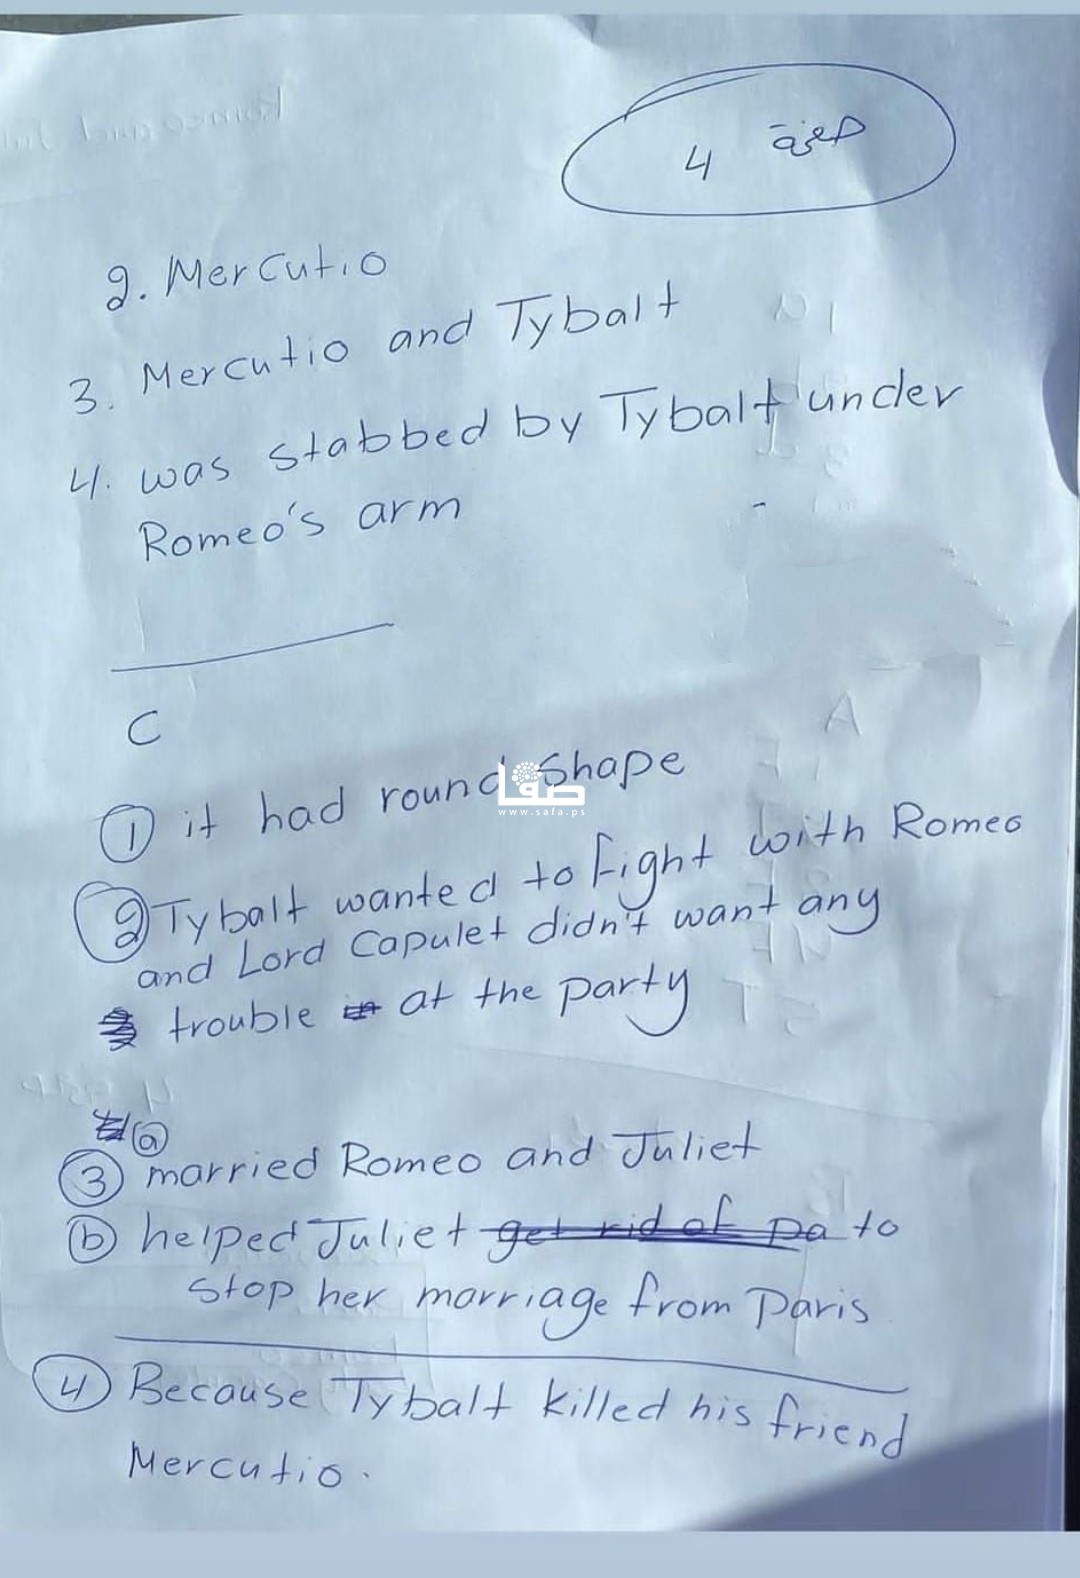 صفحة 4
2. Mercutio
3. Mercutio and Tybalt
4. was stabbed by Tybalt under
Romeo's arm
C
① it had round shape
صفا
www.safa.ps
② Tybalt wanted to fight with Romeo
and Lord Capulet didn't want any
trouble at the party
ⓐ
③ married Romeo and Juliet
ⓑ helped Juliet get rid of pa to
stop her marriage from Paris
④ Because Tybalt killed his friend
Mercutio.